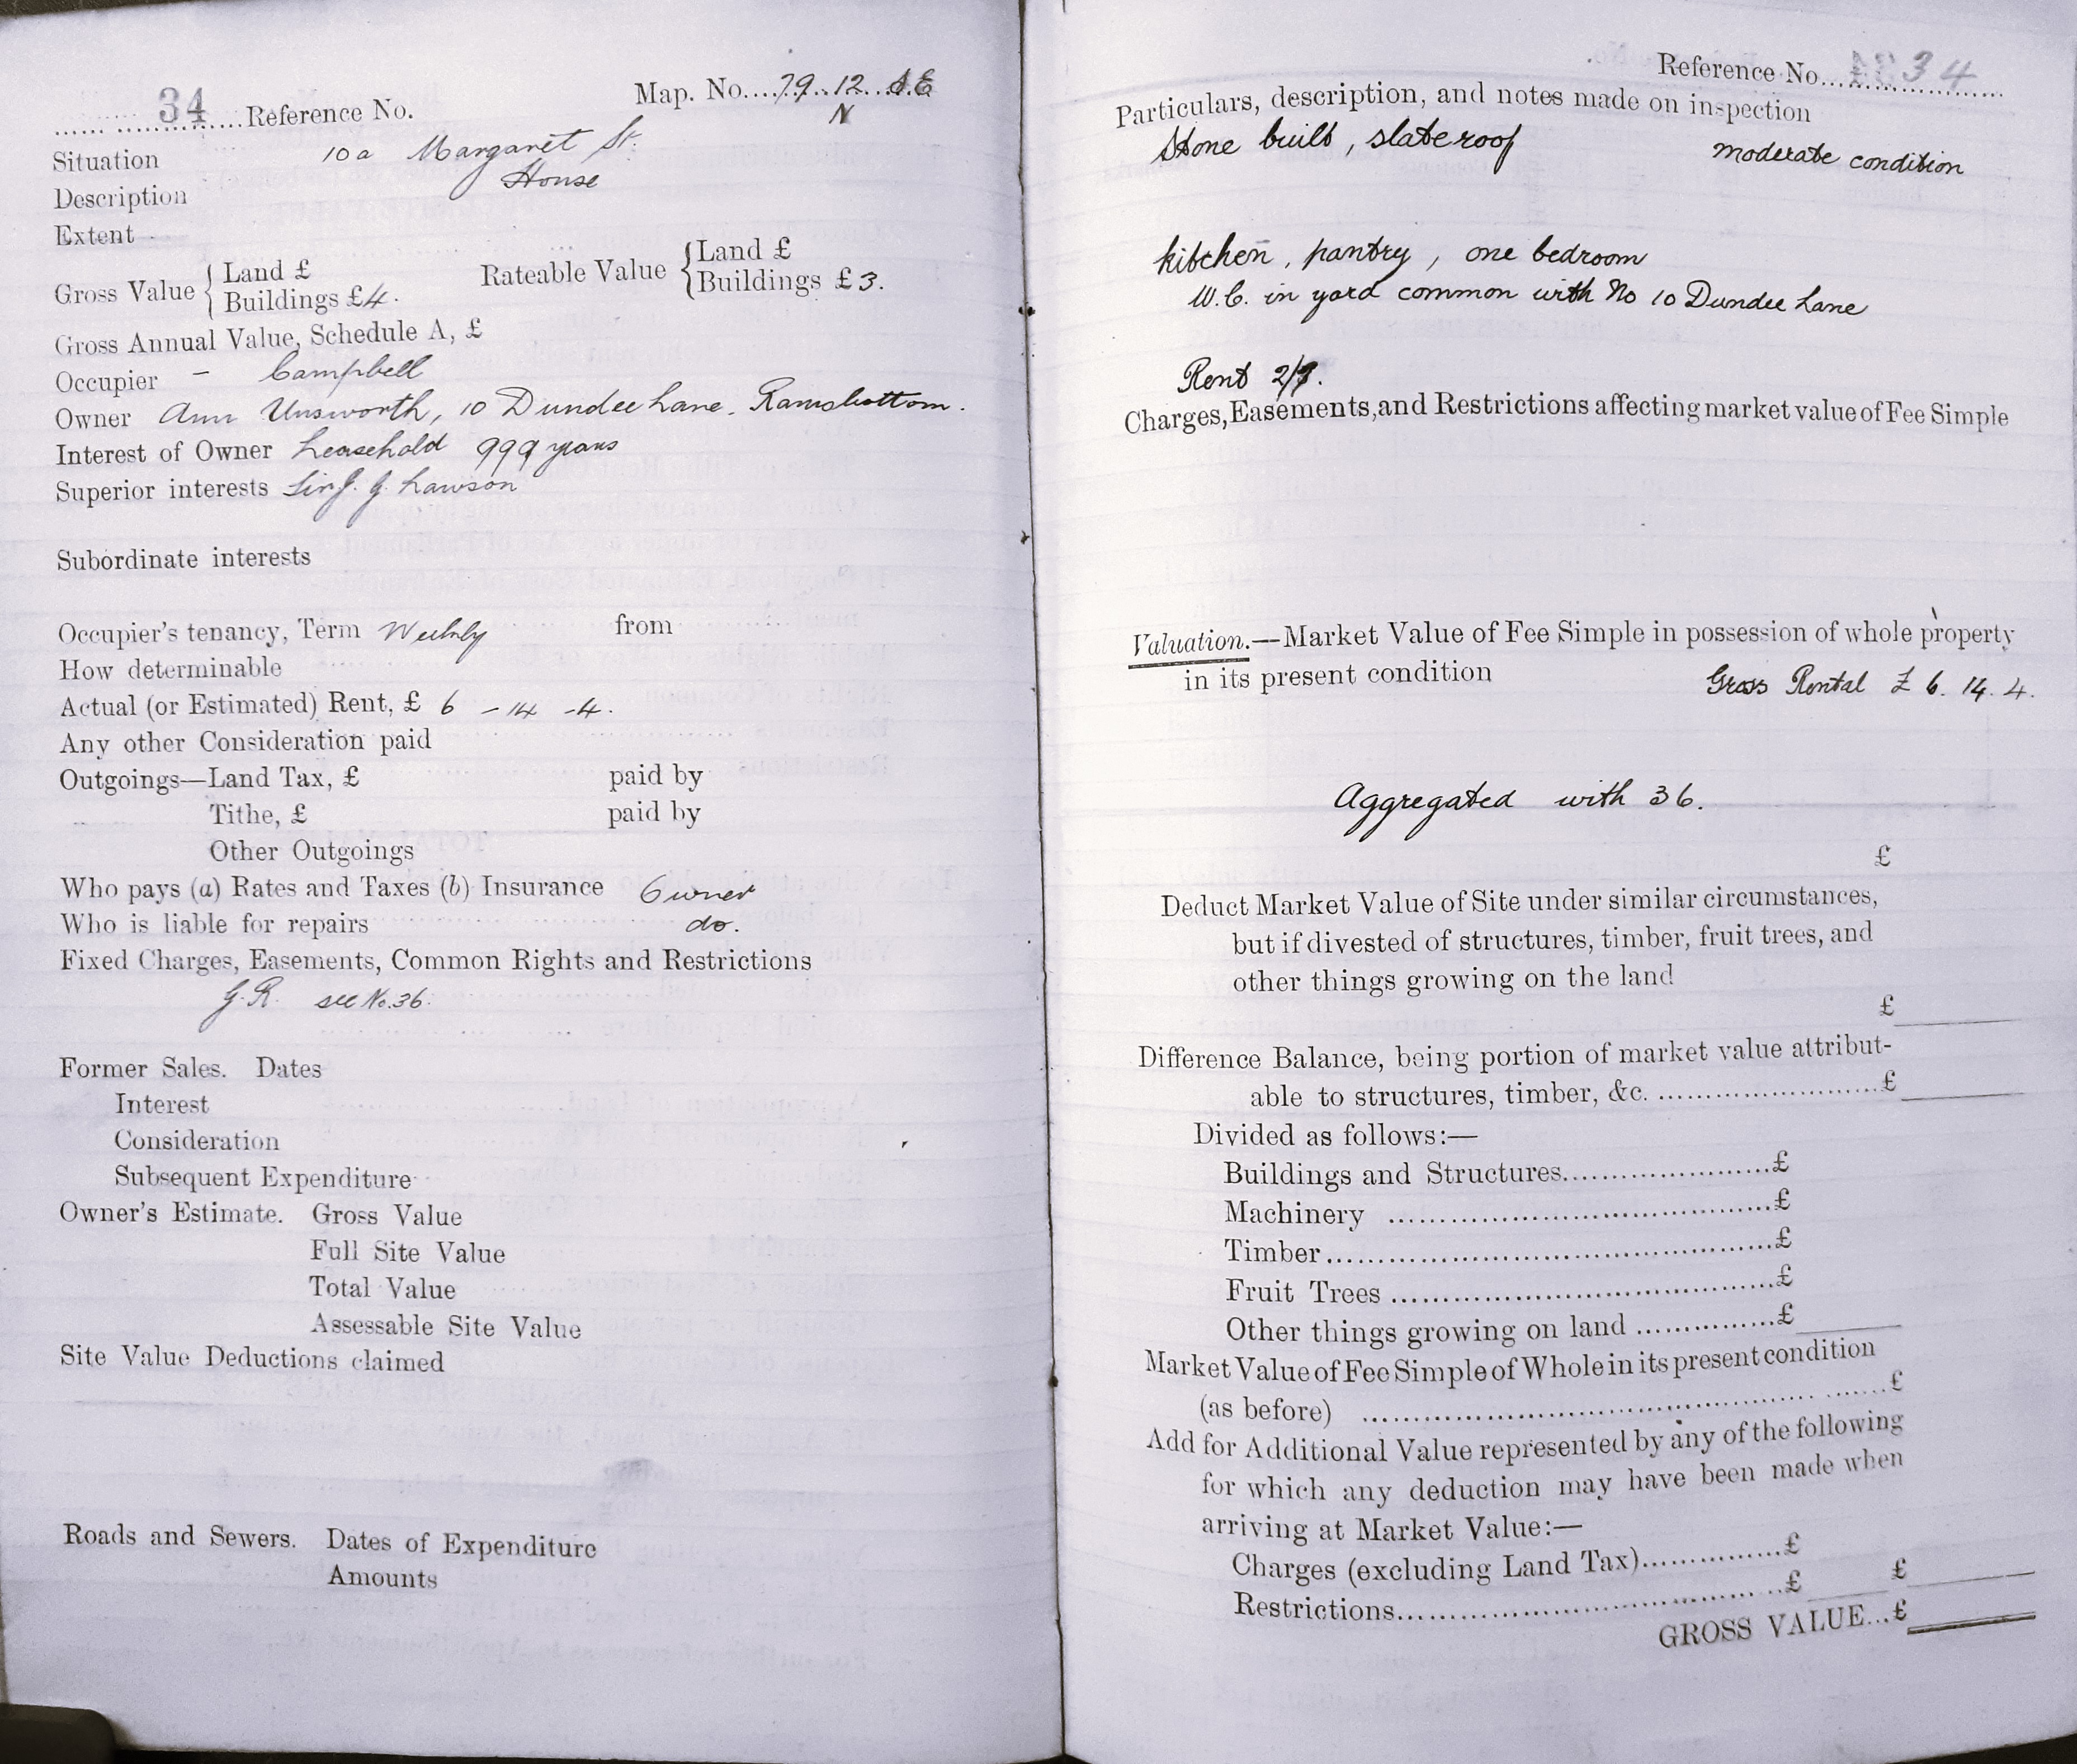 34 Reference No. Map. No. 79. 12. S.E
N
Situation 10a Margaret St.
Description House
Extent
Gross Value { Land £ Rateable Value { Land £
Buildings £4. Buildings £3.
Gross Annual Value, Schedule A, £
Occupier - Campbell
Owner Ann Unsworth, 10 Dundee Lane. Ramsbottom.
Interest of Owner Leasehold 999 years
Superior interests Sir J. G. Lawson
Subordinate interests
Occupier's tenancy, Term Weekly from
How determinable
Actual (or Estimated) Rent, £ 6 - 14 - 4.
Any other Consideration paid
Outgoings—Land Tax, £ paid by
Tithe, £ paid by
Other Outgoings
Who pays (a) Rates and Taxes (b) Insurance Owner
Who is liable for repairs do.
Fixed Charges, Easements, Common Rights and Restrictions
G.R. see No. 36.
Former Sales. Dates
Interest
Consideration
Subsequent Expenditure
Owner's Estimate. Gross Value
Full Site Value
Total Value
Assessable Site Value
Site Value Deductions claimed
Roads and Sewers. Dates of Expenditure
Amounts
Reference No. 34
Particulars, description, and notes made on inspection
Stone built, slate roof moderate condition
kitchen, pantry, one bedroom
W.C. in yard common with No 10 Dundee Lane
Rent
Charges, Easements, and Restrictions affecting market value of Fee Simple
Valuation.—Market Value of Fee Simple in possession of whole property
in its present condition Gross Rental £ 6. 14. 4.
Aggregated with 36.
£
Deduct Market Value of Site under similar circumstances,
but if divested of structures, timber, fruit trees, and
other things growing on the land
£
Difference Balance, being portion of market value attribut-
able to structures, timber, &c. £
Divided as follows:—
Buildings and Structures £
Machinery £
Timber £
Fruit Trees £
Other things growing on land £
Market Value of Fee Simple of Whole in its present condition
(as before) £
Add for Additional Value represented by any of the following
for which any deduction may have been made when
arriving at Market Value:—
Charges (excluding Land Tax) £
Restrictions £ £
GROSS VALUE...£